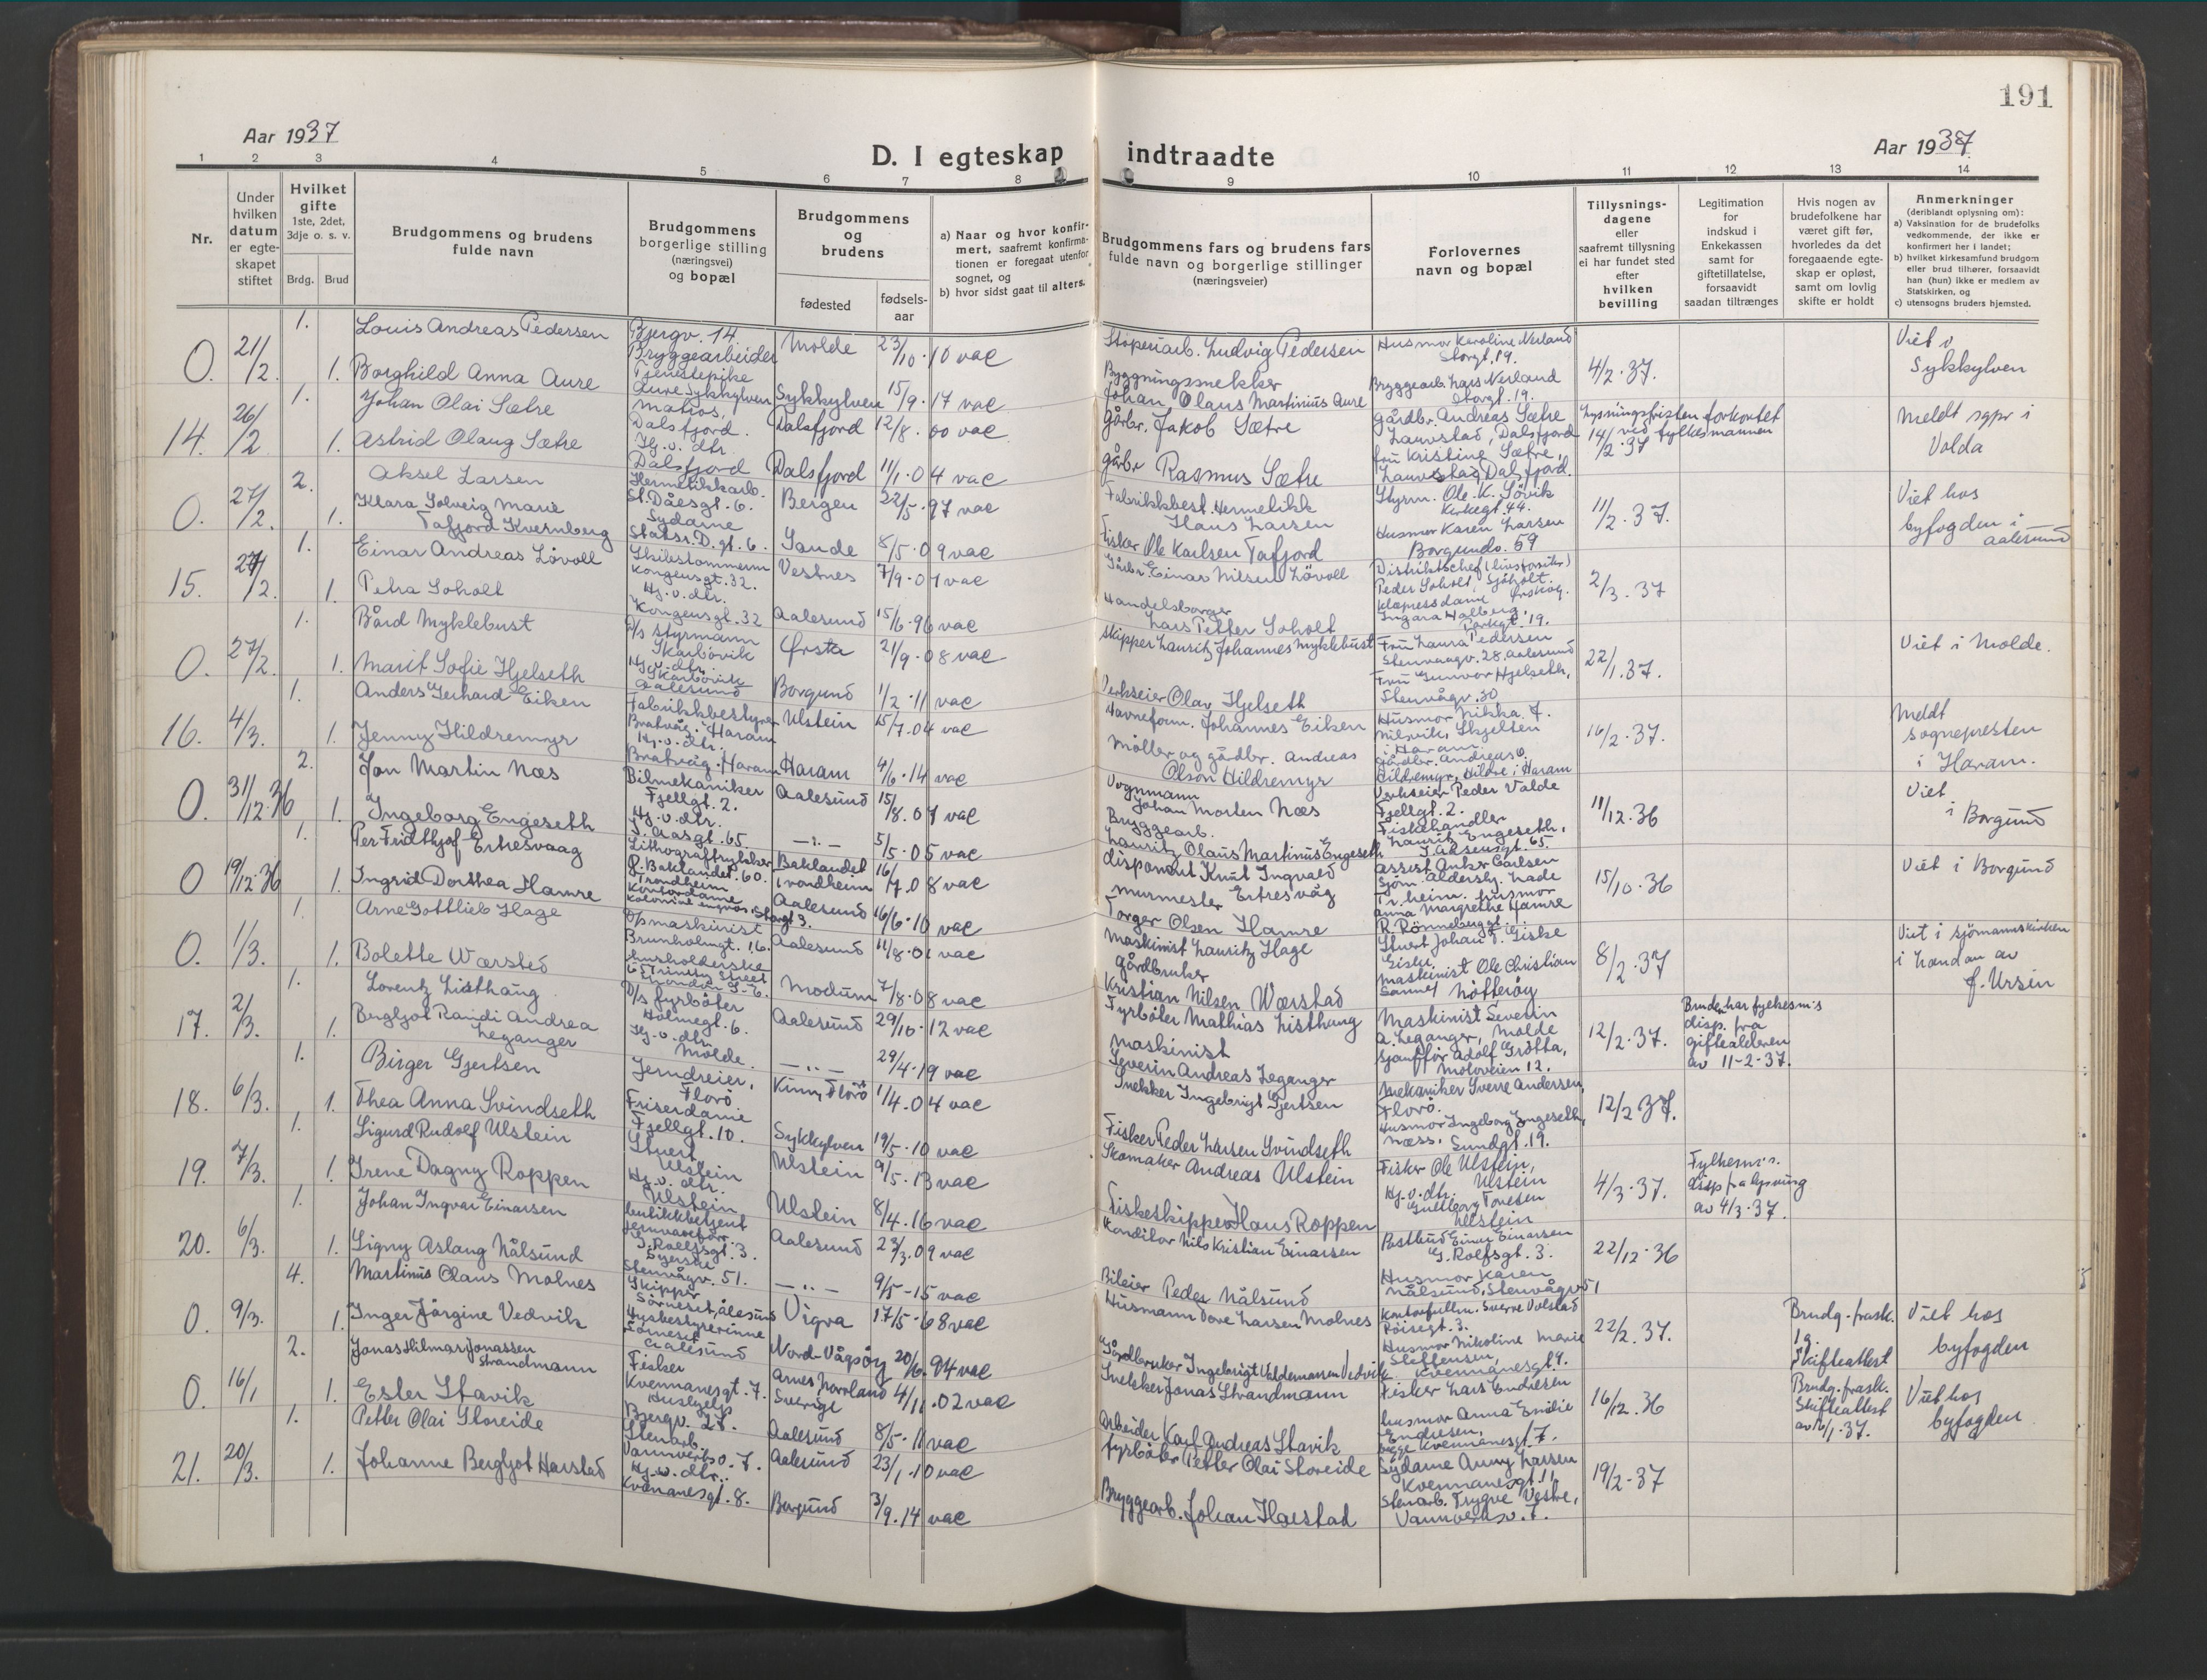 191
Aar 1937
Aar 1937.
D. I egteskap indtraadte
1 2 3 4 5 6 7 8 9 10 11 12 13 14
Nr.
Under hvilken datum er egteskapet stiftet
Hvilket gifte 1ste, 2det, 3dje o. s. v.
Brdg. Brud
Brudgommens og brudens fulde navn
Brudgommens borgerlige stilling (næringsvei) og bopæl
Brudgommens og brudens
fødested
fødselsaar
a) Naar og hvor konfirmert, saafremt konfirmationen er foregaat utenfor sognet, og
b) hvor sidst gaat til alters.
Brudgommens fars og brudens fars fulde navn og borgerlige stillinger (næringsveier)
Forlovernes navn og bopæl
Tillysningsdagene eller saafremt tillysning ei har fundet sted efter hvilken bevilling
Legitimation for indskud i Enkekassen samt for giftetillatelse, forsaavidt saadan tiltrænges
Hvis nogen av brudefolkene har været gift før, hvorledes da det foregaaende egteskap er opløst, samt om lovlig skifte er holdt
Anmerkninger (deriblandt oplysning om):
a) Vaksination for de brudefolks vedkommende, der ikke er konfirmert her i landet;
b) hvilket kirkesamfund brudgom eller brud tilhører, forsaavidt han (hun) ikke er medlem av Statskirken, og
c) utensogns bruders hjemsted.
0. 21/2. 1. Louis Andreas Pedersen Bjergv. 14. Bryggearbeider Molde 23/10.10 vac
1. Borghild Anna Aure Tjenestepike Aure Sykkylven Sykkylven 15/9.17 vac
Støperiarb. Ludvig Pedersen
Byggningssnekker Johan Olaus Martinius Aure
Husmor Karoline Nerland Storgt. 19.
Bryggearb. Lars Nerland Storgt. 19.
4/2.37.
Viet i Sykkylven
14. 26/2 1. Johan Olai Sætre Matros, Dalsfjord. Dalsfjord 12/8.00 vac
1. Astrid Olaug Sætre Hj.v. dtr. Dalsfjord Dalsfjord 11/1.04 vac
gårbr. Jakob Sætre
gårbr Rasmus Sætre
gårdbr. Andreas Sætre Lauvstad, Dalsfjord
fru Kristine Sætre, Lauvstad, Dalsfjord.
Lysningsfristen forkortet 14/2.37 ved fylkesmannen
Meldt sgpr i Volda
0. 27/2. 2. Aksel Larsen Hermetikkarb. St. Olavsgt. 6. Bergen 22/5.97 vac
1. Klara Solveig Marie Tafjord Kvernberg Sydame Statsr. D. gt. 6. Sande 8/5.09 vac
Fabrikkbest. Hermetikk Hans Larsen
Fisker Ole Karlsen Tafjord
Styrm. Ole. K. Søvik Kirkegt. 44.
Husmor Karen Larsen Borgundv. 59
11/2.37.
Viet hos byfogden i Aalesund
15. 27/2. 1. Einar Andreas Løvoll Skibstømmerm Kongensgt. 32. Vestnes 7/9.01 vac
1. Petra Soholt Hj.v. dtr. Kongensgt. 32 Aalesund 15/6.96 vac
Gårbr. Einar Nilsen Løvoll
Handelsborger Lars Petter Soholt
Distriktschef (livsforsikr) Peder Soholt, Sjøholt. Ørskog.
Klæpressdame Ingara Halberg, Parkgt. 19.
2/3.37
0. 27/2. 1. Bård Myklebust D/s styrmann Skarbøvik Ørsta 21/9.08 vac
1. Marit Sofie Hjelseth Hj.v. dtr. Skarbøvik Aalesund Borgund 1/2.11 vac
skipper Lauritz Johannes Myklebust
Verkseier Olav Hjelseth
Fru Laura Pedersen Stenvaagv. 28, Aalesund
Fru Gunvor Hjelseth, Stenvågv. 30
22/1.37.
Viet i Molde.
16. 4/3. 1. Anders Gerhard Eiken Fabrikkbestyrer Bratvåg i Haram Ulstein 15/7.04 vac
1. Jenny Hildremyr Hj.v. dtr. Bratvåg. Haram Haram 4/6.14 vac
Havneform. Johannes Eiken
Møller og gårdbr. Andreas Olson Hildremyr
Husmor Rikka J. Nilsvik, Skjelten i Haram.
gårdbr. Andreas O. Hildremyr, Hildre i Haram
16/2.37.
Meldt sognepresten i Haram.
0. 31/12.36 2. Jon Martin Næs Bilmekaniker Fjellgt. 2. Aalesund 15/8.07 vac
1. Ingeborg Engeseth Hj.v. dtr. I. Aasgt. 65. —"— 5/5.05 vac
Vognmann Johan Morten Næs
Bryggearb. Lauritz Olaus Martinus Engeseth
Verkseier Peder Valde Fjellgt. 2.
Fiskehandler Lauritz Engeseth, I. Aasengt. 65.
11/12.36
Viet i Borgund
0 19/12.36 1. Per Fridthjof Ertresvaag Lithograftrykker Ø. Baklandet. 60. Trondheim Baklandet i Trondheim 16/7.08 vac
1. Ingrid Dorthea Hamre Kontordame Kolonial engros, Storgt 3. Aalesund 16/6.10 vac
disponent Knut Ingvald Ertresvåg
murmester Torger Olsen Hamre
Assist. Anker Carlsen Sjøm. aldershj. Lade Tr.heim.
husmor Anna Margrethe Hamre R. Rønnebergsgt.
15/10.36
Viet i Borgund
0. 1/3. 1. Arne Gottlieb Hage D/s maskinist Brunholmgt. 16. Aalesund 11/8.01 vac
1. Bolette Wærsted husholderske 6 Trinity Street London S.E. Modum 7/8.08 vac
Maskinist Lauritz Hage
gårdbruker Kristian Nilsen Wærstad
Stuert Johan P. Giske Giske,
maskinist Ole Christian Sannes Nøtterøy
8/2.37
Viet i sjømannskirken i London av J. Ursin
17. 2/3. 1. Lorentz Listhaug D/s fyrbøter Holmegt. 6. Aalesund 29/10.12 vac
1. Bergljot Randi Andrea Leganger Hj.v. dtr. Molde. —"— 29/4.19 vac
Fyrbøter Mathias Listhaug
maskinist Severin Andreas Leganger
Maskinist Severin A. Leganger, Molde
sjauffør Adolf Grøtta, Moloveien 12.
12/2.37.
Bruden har fylkesm:s disp. fra giftealderen av 11-2-37.
18. 6/3. 1. Birger Gjertsen Jerndreier, Florø Kinn, Florø 1/4.04 vac
1. Thea Anna Svindseth Friserdame Fjellgt. 10. Sykkylven 19/5.10 vac
Snekker Ingebrigt Gjertsen
Fisker Peder Larsen Svindseth
Mekaniker Sverre Andersen, Florø.
Husmor Ingeborg Engeseth, Næss, Sundgt. 19.
12/2 37.
19. 7/3. 1. Sigurd Rudolf Ulstein Stuert Ulstein Ulstein 9/5.13 vac
1. Irene Dagny Roppen Hj.v. dtr. Ulstein Ulstein 8/4.16 vac
Skomaker Andreas Ulstein
Fiskeskipper Hans Roppen
Fisker Ole Ulstein, Ulstein
Hj.v. dtr. Gullborg Tonesen Ulstein
4/3.37.
Fylkesm:s. disp fra lysning av 4/3.37.
20. 6/3. 1. Johan Ingvar Einarsen butikkbetjent jernvareforr. G. Rolfsgt. 3. Aalesund 23/3.09 vac
1. Signy Aslaug Nålsund Syerske Stenvågv. 51. —"— 9/5-15 vac
Konditor Nils Kristian Einarsen
Bileier Peder Nålsund
Postbud Einar Einarsen G. Rolfsgt. 3.
Husmor Karen Nålsund, Stenvågv. 51
22/12.36
0. 9/3. 4. Martinus Olaus Molnes Skipper Sørneset, Ålesund Vigra 17/5.68 vac
1. Inger Jørgine Vedvik Husbestyrerinne Sørneset Aalesund Nord-Vågsøy 20/6.94 vac
Husmann Dove Larsen Molnes
Gårdbruker Ingebrigt Valdemarsen Vedvik
Kontorfullm. Sverre Volstad Røisegt. 3.
Husmor Nikoline Marie Steffensen, Kvennanesgt 9.
22/2.37.
Brudg. frask. lg. Skifteattest
Viet hos byfogden
0. 16/1 2. Jonas Hilmar Jonassen Strandmann Fisker Kvennanesgt. 7. Arnes Norrland Sverige 4/11.02 vac
1. Ester Stavik Hushjelp Bjergv. 27. Aalesund 8/5.11 vac
Snekker Jonas Strandmann
Arbeider Karl Andreas Stavik
Fisker Lars Endresen
husmor Anna Emilie Endresen, begge Kvennanesgt 7.
16/12.36
Brudg. frask. Skifteattest
Viet hos byfogden.
21. 20/3. 1. Petter Olai Storeide Stenarb. Vannverksv. 7. Aalesund 23/1.10 vac
1. Johanne Bergljot Harstad Hj.v. dtr. Kvennanesgt. 8. Borgund 3/9.14 vac
fyrbøter Petter Olai Storeide
Bryggearb. Johan Harstad
Sydame Anny Larsen Kvennanesgt 11
Stenarb. Trygve Vestre, Vannverksv. 7.
19/2-37